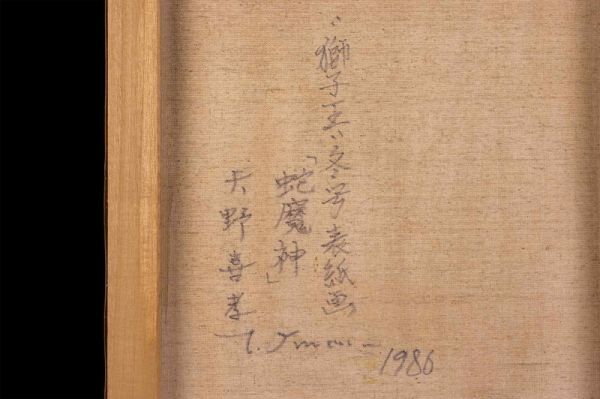 "獅子王"冬号表紙画
「蛇魔神」
天野喜孝
T. Amano
1986